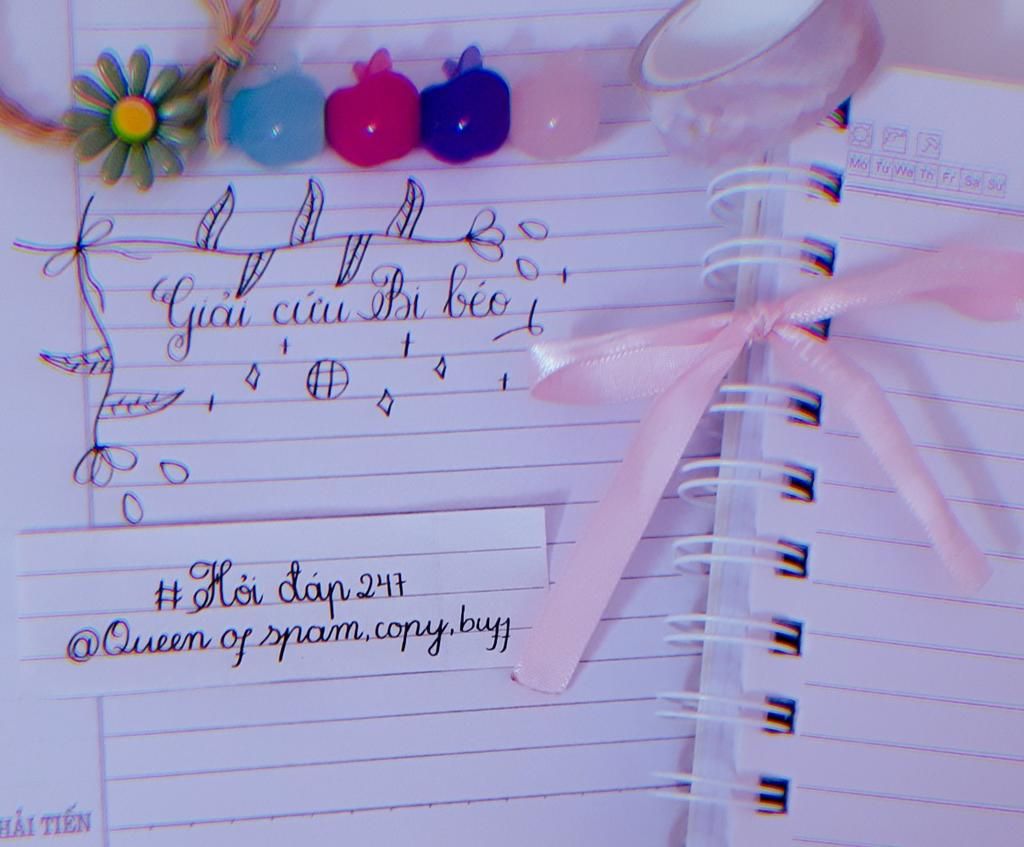 Mo Tu We Th Fr Sa Su
Giải cứu Bi béo
#Hỏi đáp 247
@Queen of spam, copy, buff
HẢI TIẾN